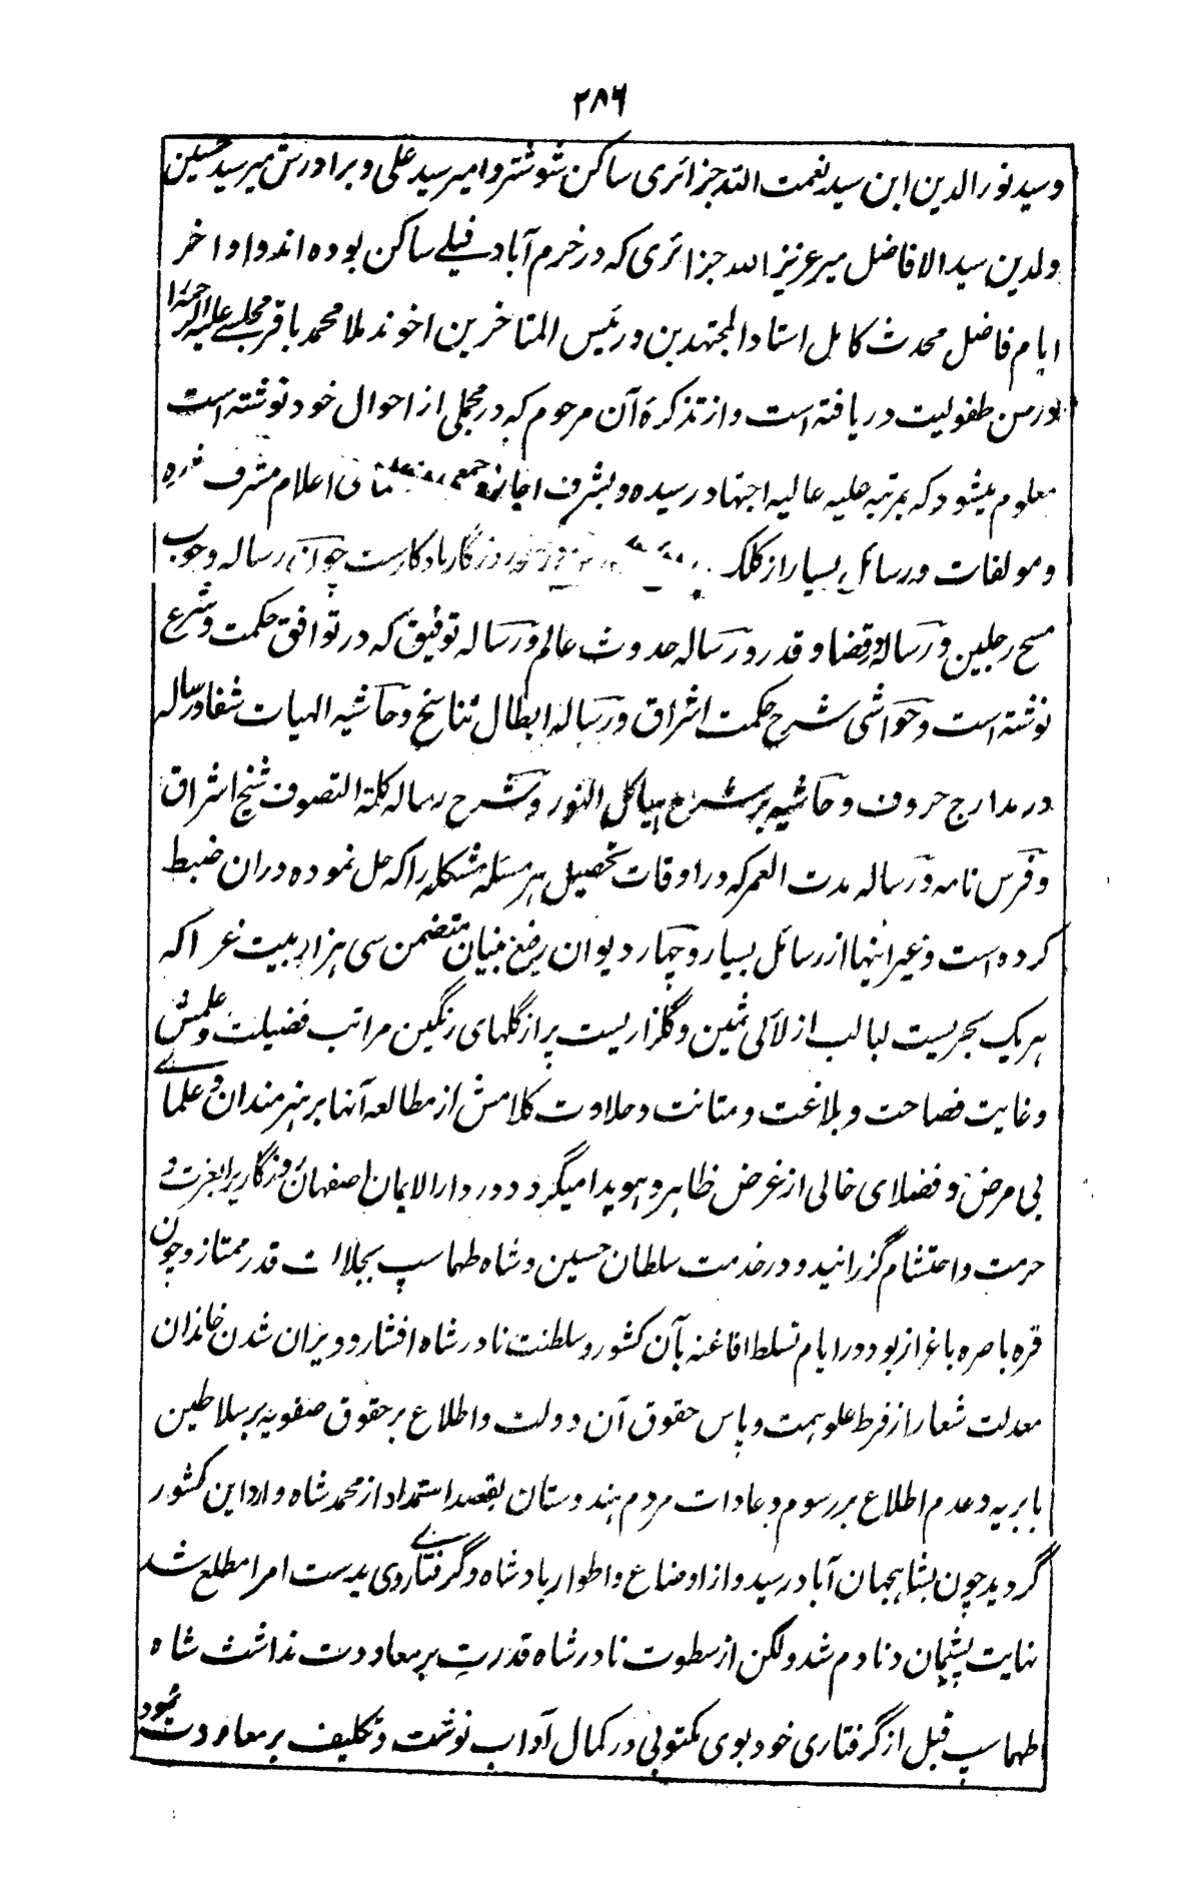 ۲۸۶
وسید نورالدین ابن سید نعمت الله جزائری ساکن شوشتر و امیر سید علی و برادرش میر سید حسین
ولدین سید الافاضل میر عزیز الله جزائری که در خرم آباد فیلے ساکن بوده اند و اواخر
ایام فاضل محدث کامل استاد المجتهدین و رئیس المتاخرین اخوند ملا محمد باقر مجلسے علیه الرحمة را
در سن طفولیت دریافته است و از تذکرهٔ آن مرحوم که در مجملی از احوال خود نوشته است
معلوم میشود که بمرتبه علیه عالیه اجتهاد رسیده و بشرف اجازه جمعی اعلام مشرف
و مولفات و رسائل بسیار از کلک روزگار یادگارست چون رساله وجوب
مسح رجلین و رساله قضا و قدر و رساله حدوث عالم و رساله توفیق که در توافق حکمت و شرع
نوشته است و حواشی شرح حکمت اشراق و رساله ابطال تناسخ و حاشیه الهیات شفا و رساله
در مدارج حروف و حاشیه بر شرح هیاکل النور و شرح رساله کلمة التصوف شیخ اشراق
و فرس نامه و رساله مدت العمر که در اوقات تحصیل هر مسئله مشکله را که حل نموده دران ضبط
کرده است و غیر اینها از رسائل بسیار و چهار دیوان رفیع بنیان متضمن سی هزار بیت غرا که
هر یک بحریست لبالب از لآلی ثمین و گلزاریست پر از گلهای رنگین مراتب فضیلت و علمش
و غایت فصاحت و بلاغت و متانت و حلاوت کلامش از مطالعه آنها بر هنرمندان و علمائے
بی مرض و فضلای خالی از غرض ظاهر و هویدا میگردد و در دار الایمان اصفهان روزگار برا بعزت و
حرمت و احتشام گزرانید و در خدمت سلطان حسین و شاه طهماسپ بجلالت قدر ممتاز و چون
قره باصره باغراز بود در ایام تسلط افاغنه بآن کشور و سلطنت نادر شاه افشار و ویران شدن خاندان
معدلت شعار از فرط علو همت و پاس حقوق آن دولت و اطلاع بر حقوق صفویه بر سلاطین
بابریه و عدم اطلاع بر رسوم و عادات مردم هندوستان بقصد استمداد از محمد شاه وارد این کشور
گردید چون بشاهجهان آباد رسید و از اوضاع و اطوار بادشاه و گرفتارے وی بدست امرا مطلع شد
نهایت پشیمان و نادم شد ولکن از سطوت نادر شاه قدرتِ بر معاودت نداشت شاه
طهماسپ قبل از گرفتاری خود بوی مکتوبی در کمال آداب نوشت و تکلیف بر معاودت نمود